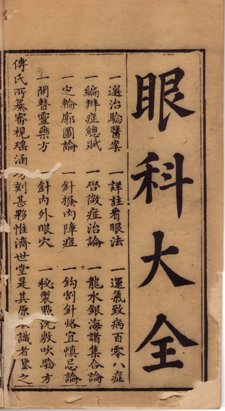 眼科大全
一選治驗醫案 一詳註看眼法 一運氣致病百零八症
一編辨症總賦 一啓微症治論 一龍水銀海譜集合論
一定輪廓圖論 一針撥內障症 一鈎割針烙宜慎忌論
一開瞽靈藥方 一針內外眼穴 一秘製點洗敷吹驗方
傅氏所纂審視瑤涵坊刻甚夥惟濟世堂是其原本識者鑒之